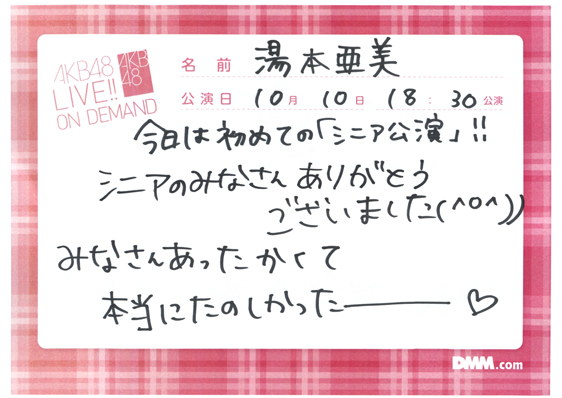 AKB48
LIVE!!
ON DEMAND
AKB
48
名前 湯本亜美
公演日 10月 10日 18:30公演
今日は初めての「シニア公演」!!
シニアのみなさんありがとう
ございました(^o^))
みなさんあったかくて
本当にたのしかった―――♡
DMM.com